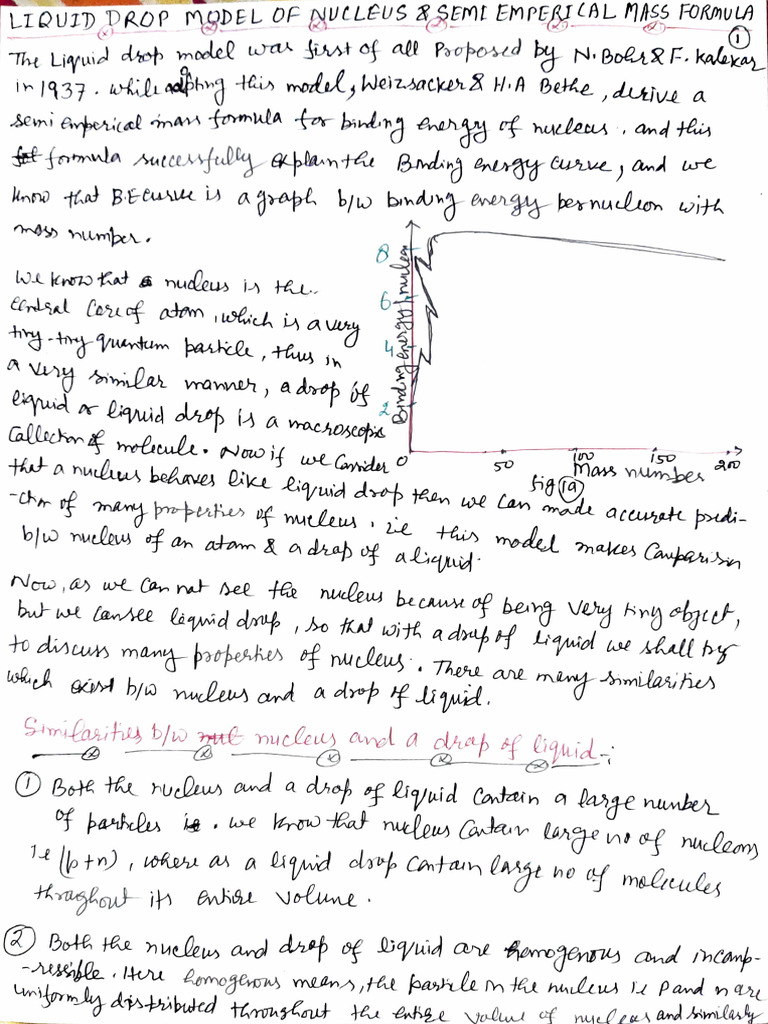 LIQUID DROP MODEL OF NUCLEUS & SEMI EMPERICAL MASS FORMULA
1
The Liquid drop model was first of all Proposed by N. Bohr & F. Kalekar
in 1937. while adopting this model, Weizsacker & H.A Bethe, derive a
semi emperical mass formula for binding energy of nucleus. and this
formula successfully explain the Binding energy curve, and we
know that B.E curve is a graph b/w binding energy per nucleon with
mass number.
We know that a nucleus is the
central core of atom, which is a very
tiny-tiny quantum particle, thus in
a very similar manner, a drop of
liquid or liquid drop is a macroscopic
Collection of molecule. Now if we Consider
that a nucleus behaves like liquid drop then we can made accurate predi-
-ction of many properties of nucleus. i.e this model makes Comparison
b/w nucleus of an atom & a drop of a liquid.
Binding energy / nucleon
8
6
4
2
0
50
100
150
200
Mass number
fig 1a
Now, as we can not see the nucleus because of being very tiny object,
but we can see liquid drop, so that with a drop of liquid we shall try
to discuss many properties of nucleus. There are many similarities
which exist b/w nucleus and a drop of liquid.
Similarities b/w nucleus and a drop of liquid-:
1 Both the nucleus and a drop of liquid Contain a large number
of particles. we know that nucleus Contain large no of nucleons
i.e (p+n), where as a liquid drop Contain large no of molecules
throughout its entire volume.
2 Both the nucleus and drop of liquid are homogenous and incomp-
-ressible. Here homogenous means, the particle in the nucleus i.e p and n are
uniformly distributed throughout the entire volume of nucleus and similarly